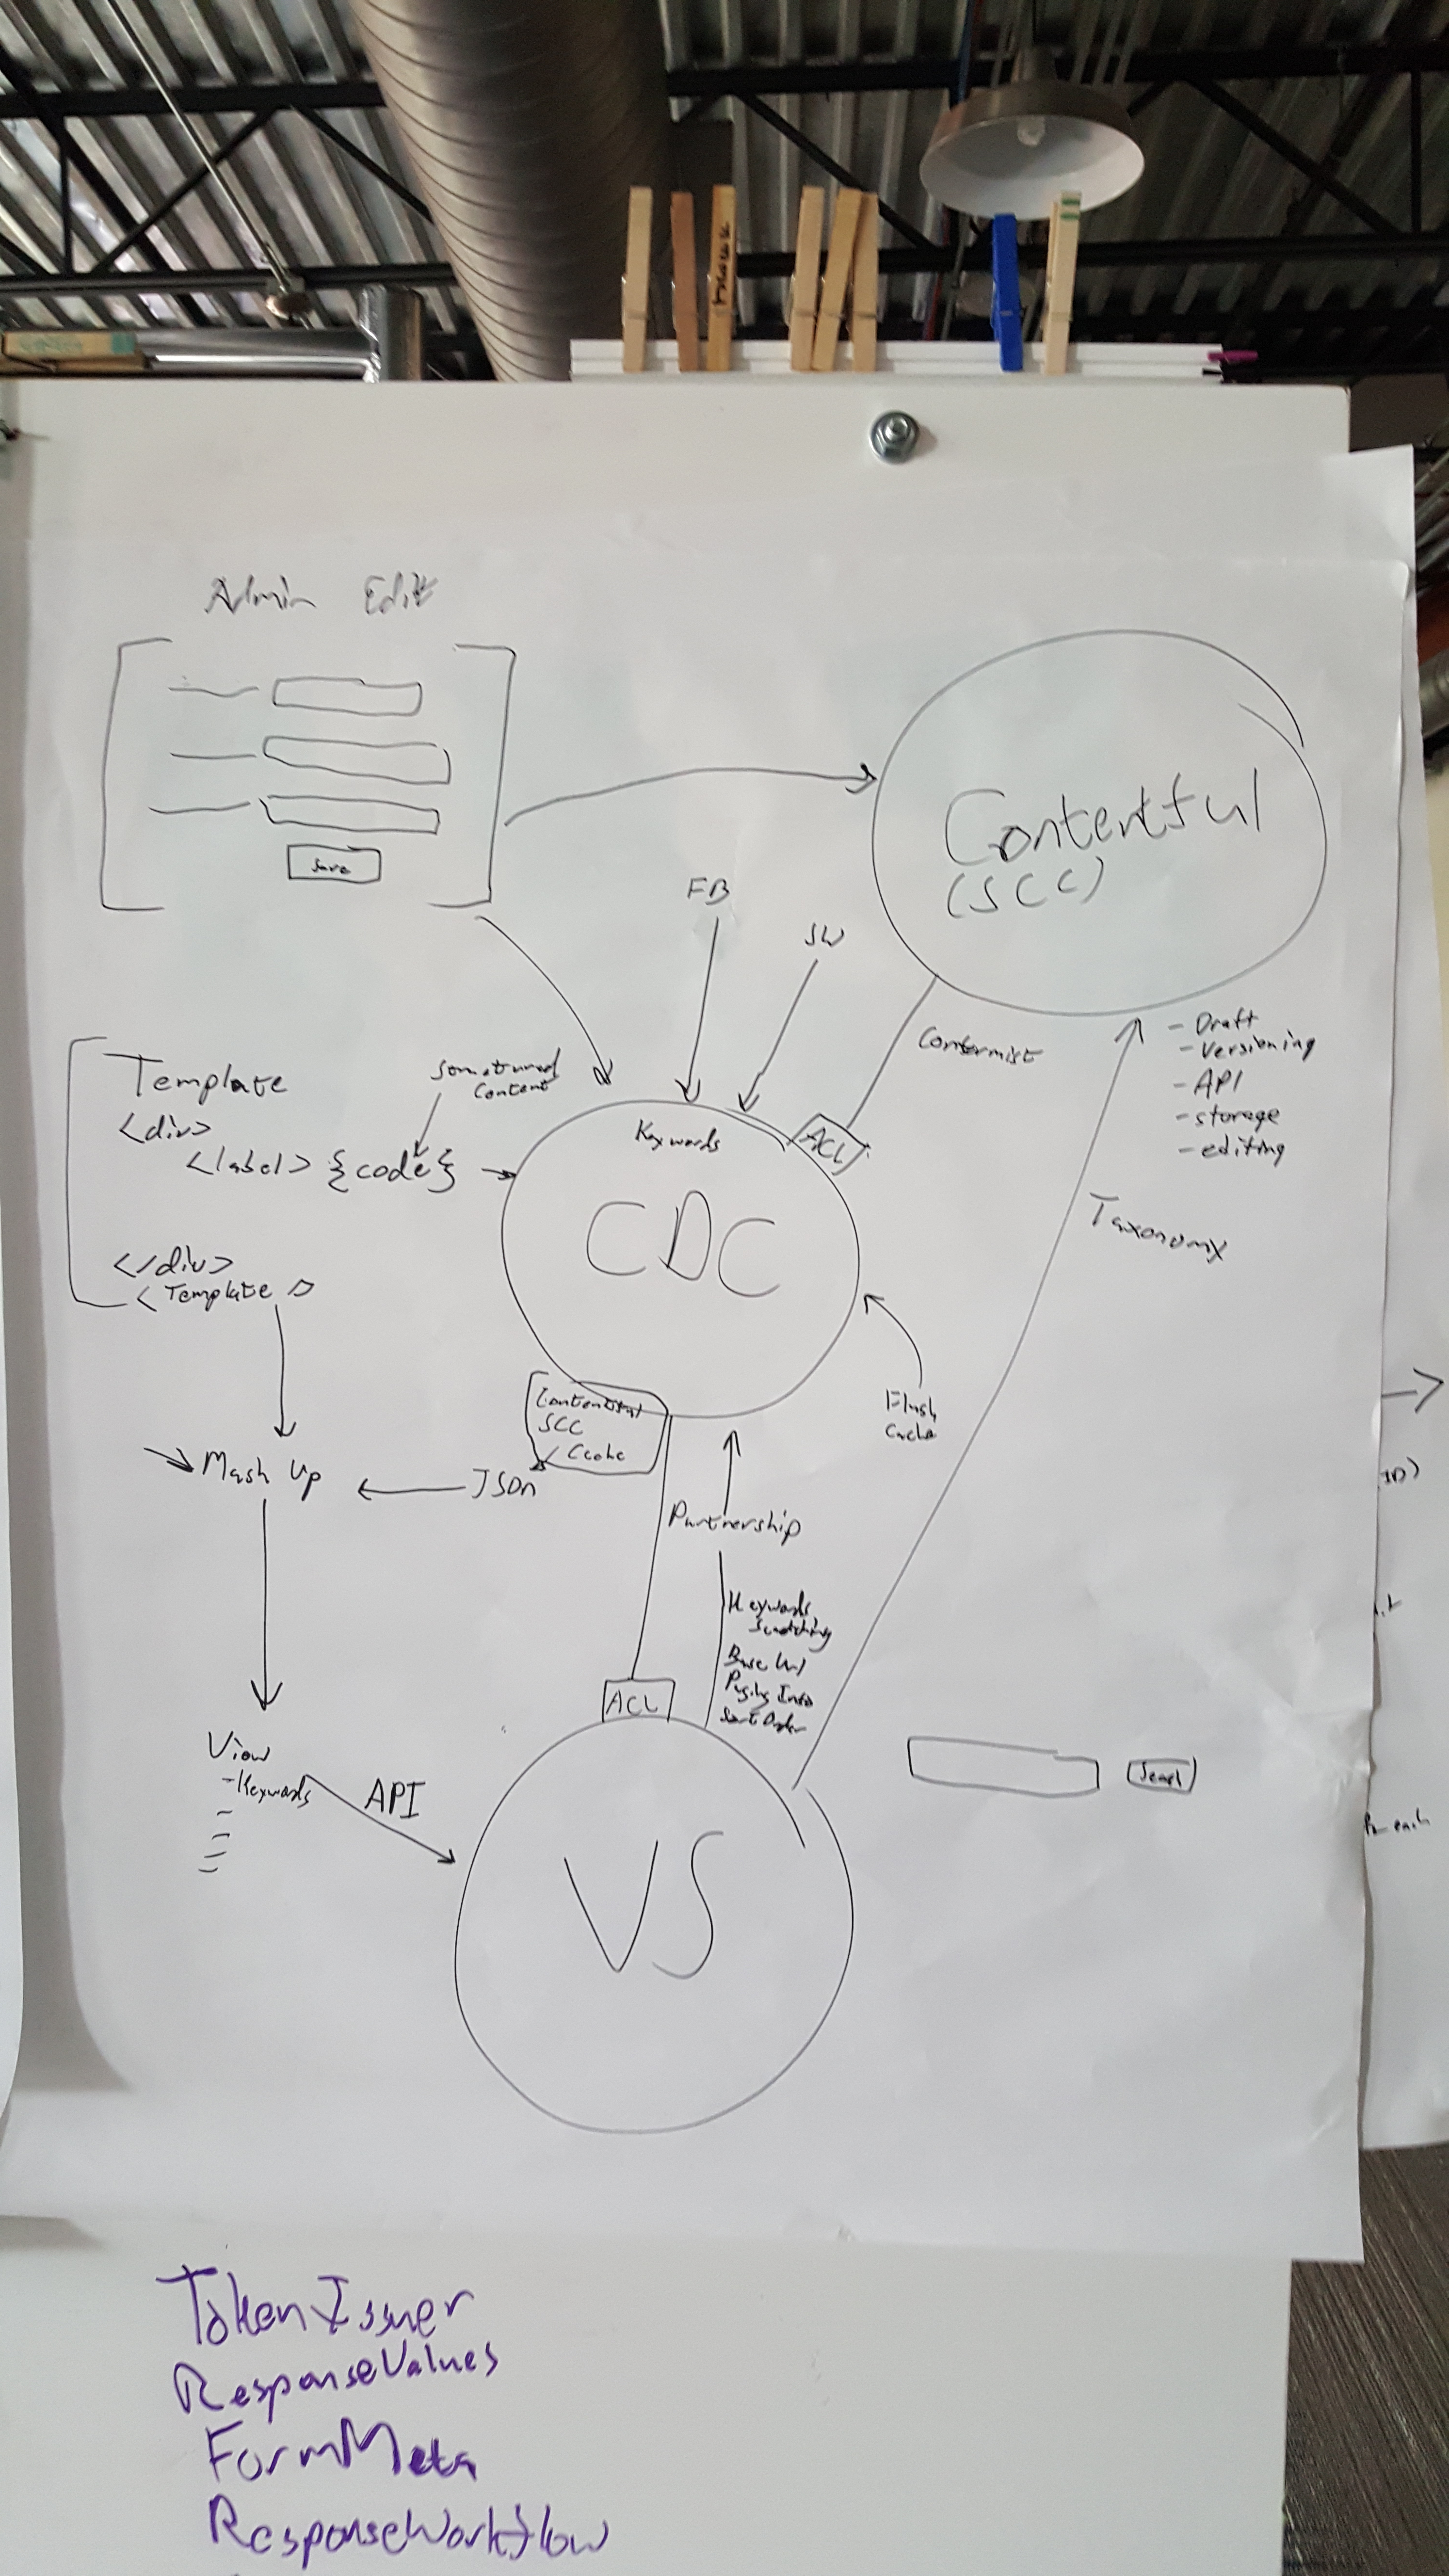 Admin Edit
Save
Contentful
(SCC)
FB
SW
Conformist
- Draft
- Versioning
- API
- storage
- editing
Template
<div>
<label> {code}
</div>
< Template >
Content
Keywords
ACL
CDC
Taxonomy
Flush
Cache
Contentful
SCC
Cache
JSON
Mash Up
Partnership
Keywords
Searching
Base Url
Paging Info
Sort Order
ACL
View
- Keywords
API
VS
TokenIssuer
ResponseValues
FormMeta
ResponseWorkflow